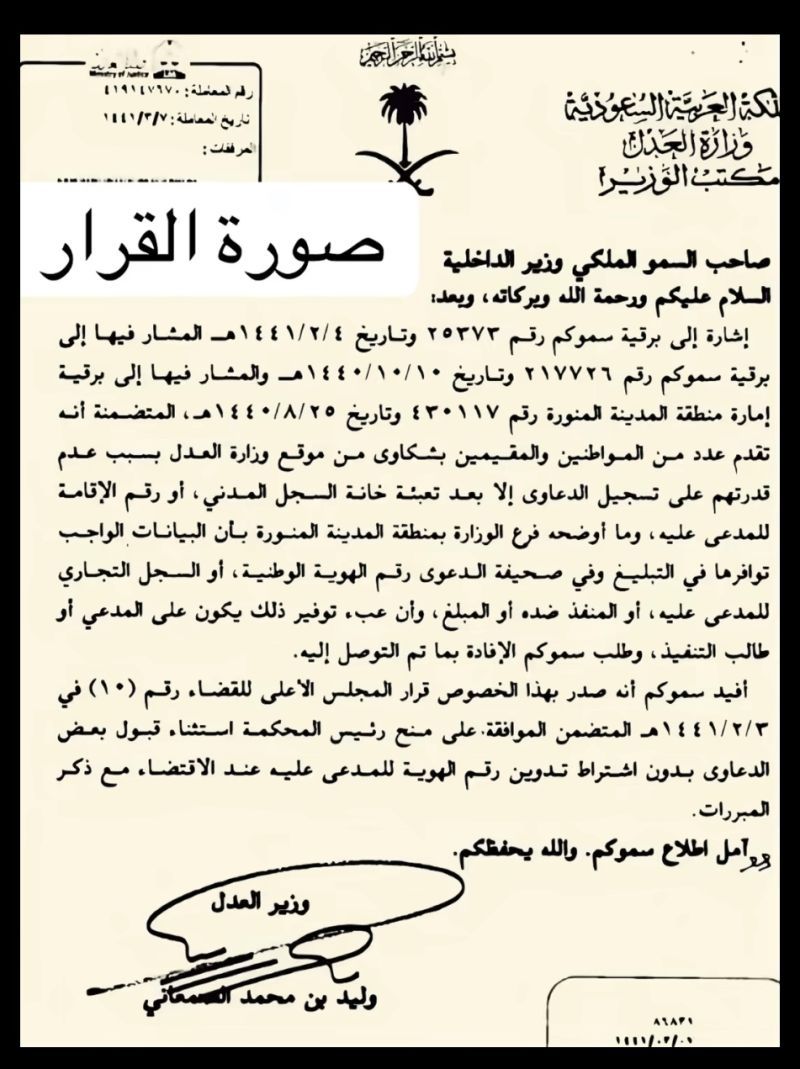 بسم الله الرحمن الرحيم
المملكة العربية السعودية
وزارة العدل
مكتب الوزير
Ministry of Justice
رقم المعاملة: ٤١٩١٤٧٦٧٠
تاريخ المعاملة: ١٤٤١/٣/٧
المرفقات:
صورة القرار
صاحب السمو الملكي وزير الداخلية
السلام عليكم ورحمة الله وبركاته، وبعد:
إشارة إلى برقية سموكم رقم ٢٥٣٧٣ وتاريخ ١٤٤١/٢/٤هـ المشار فيها إلى
برقية سموكم رقم ٢١٧٧٢٦ وتاريخ ١٤٤٠/١٠/١٠هـ والمشار فيها إلى برقية
إمارة منطقة المدينة المنورة رقم ٤٣٠١١٧ وتاريخ ١٤٤٠/٨/٢٥هـ، المتضمنة أنه
تقدم عدد من المواطنين والمقيمين بشكاوى من موقع وزارة العدل بسبب عدم
قدرتهم على تسجيل الدعاوى إلا بعد تعبئة خانة السجل المدني، أو رقم الإقامة
للمدعى عليه، وما أوضحه فرع الوزارة بمنطقة المدينة المنورة بأن البيانات الواجب
توافرها في التبليغ وفي صحيفة الدعوى رقم الهوية الوطنية، أو السجل التجاري
للمدعى عليه، أو المنفذ ضده أو المبلغ، وأن عبء توفير ذلك يكون على المدعي أو
طالب التنفيذ، وطلب سموكم الإفادة بما تم التوصل إليه.
أفيد سموكم أنه صدر بهذا الخصوص قرار المجلس الأعلى للقضاء رقم (١٠) في
١٤٤١/٢/٣هـ المتضمن الموافقة على منح رئيس المحكمة استثناء قبول بعض
الدعاوى بدون اشتراط تدوين رقم الهوية للمدعى عليه عند الاقتضاء مع ذكر
المبررات.
آمل اطلاع سموكم. والله يحفظكم.
وزير العدل
وليد بن محمد الصمعاني
٨٦٨٣١
١٤٤١/٠٣/٠١